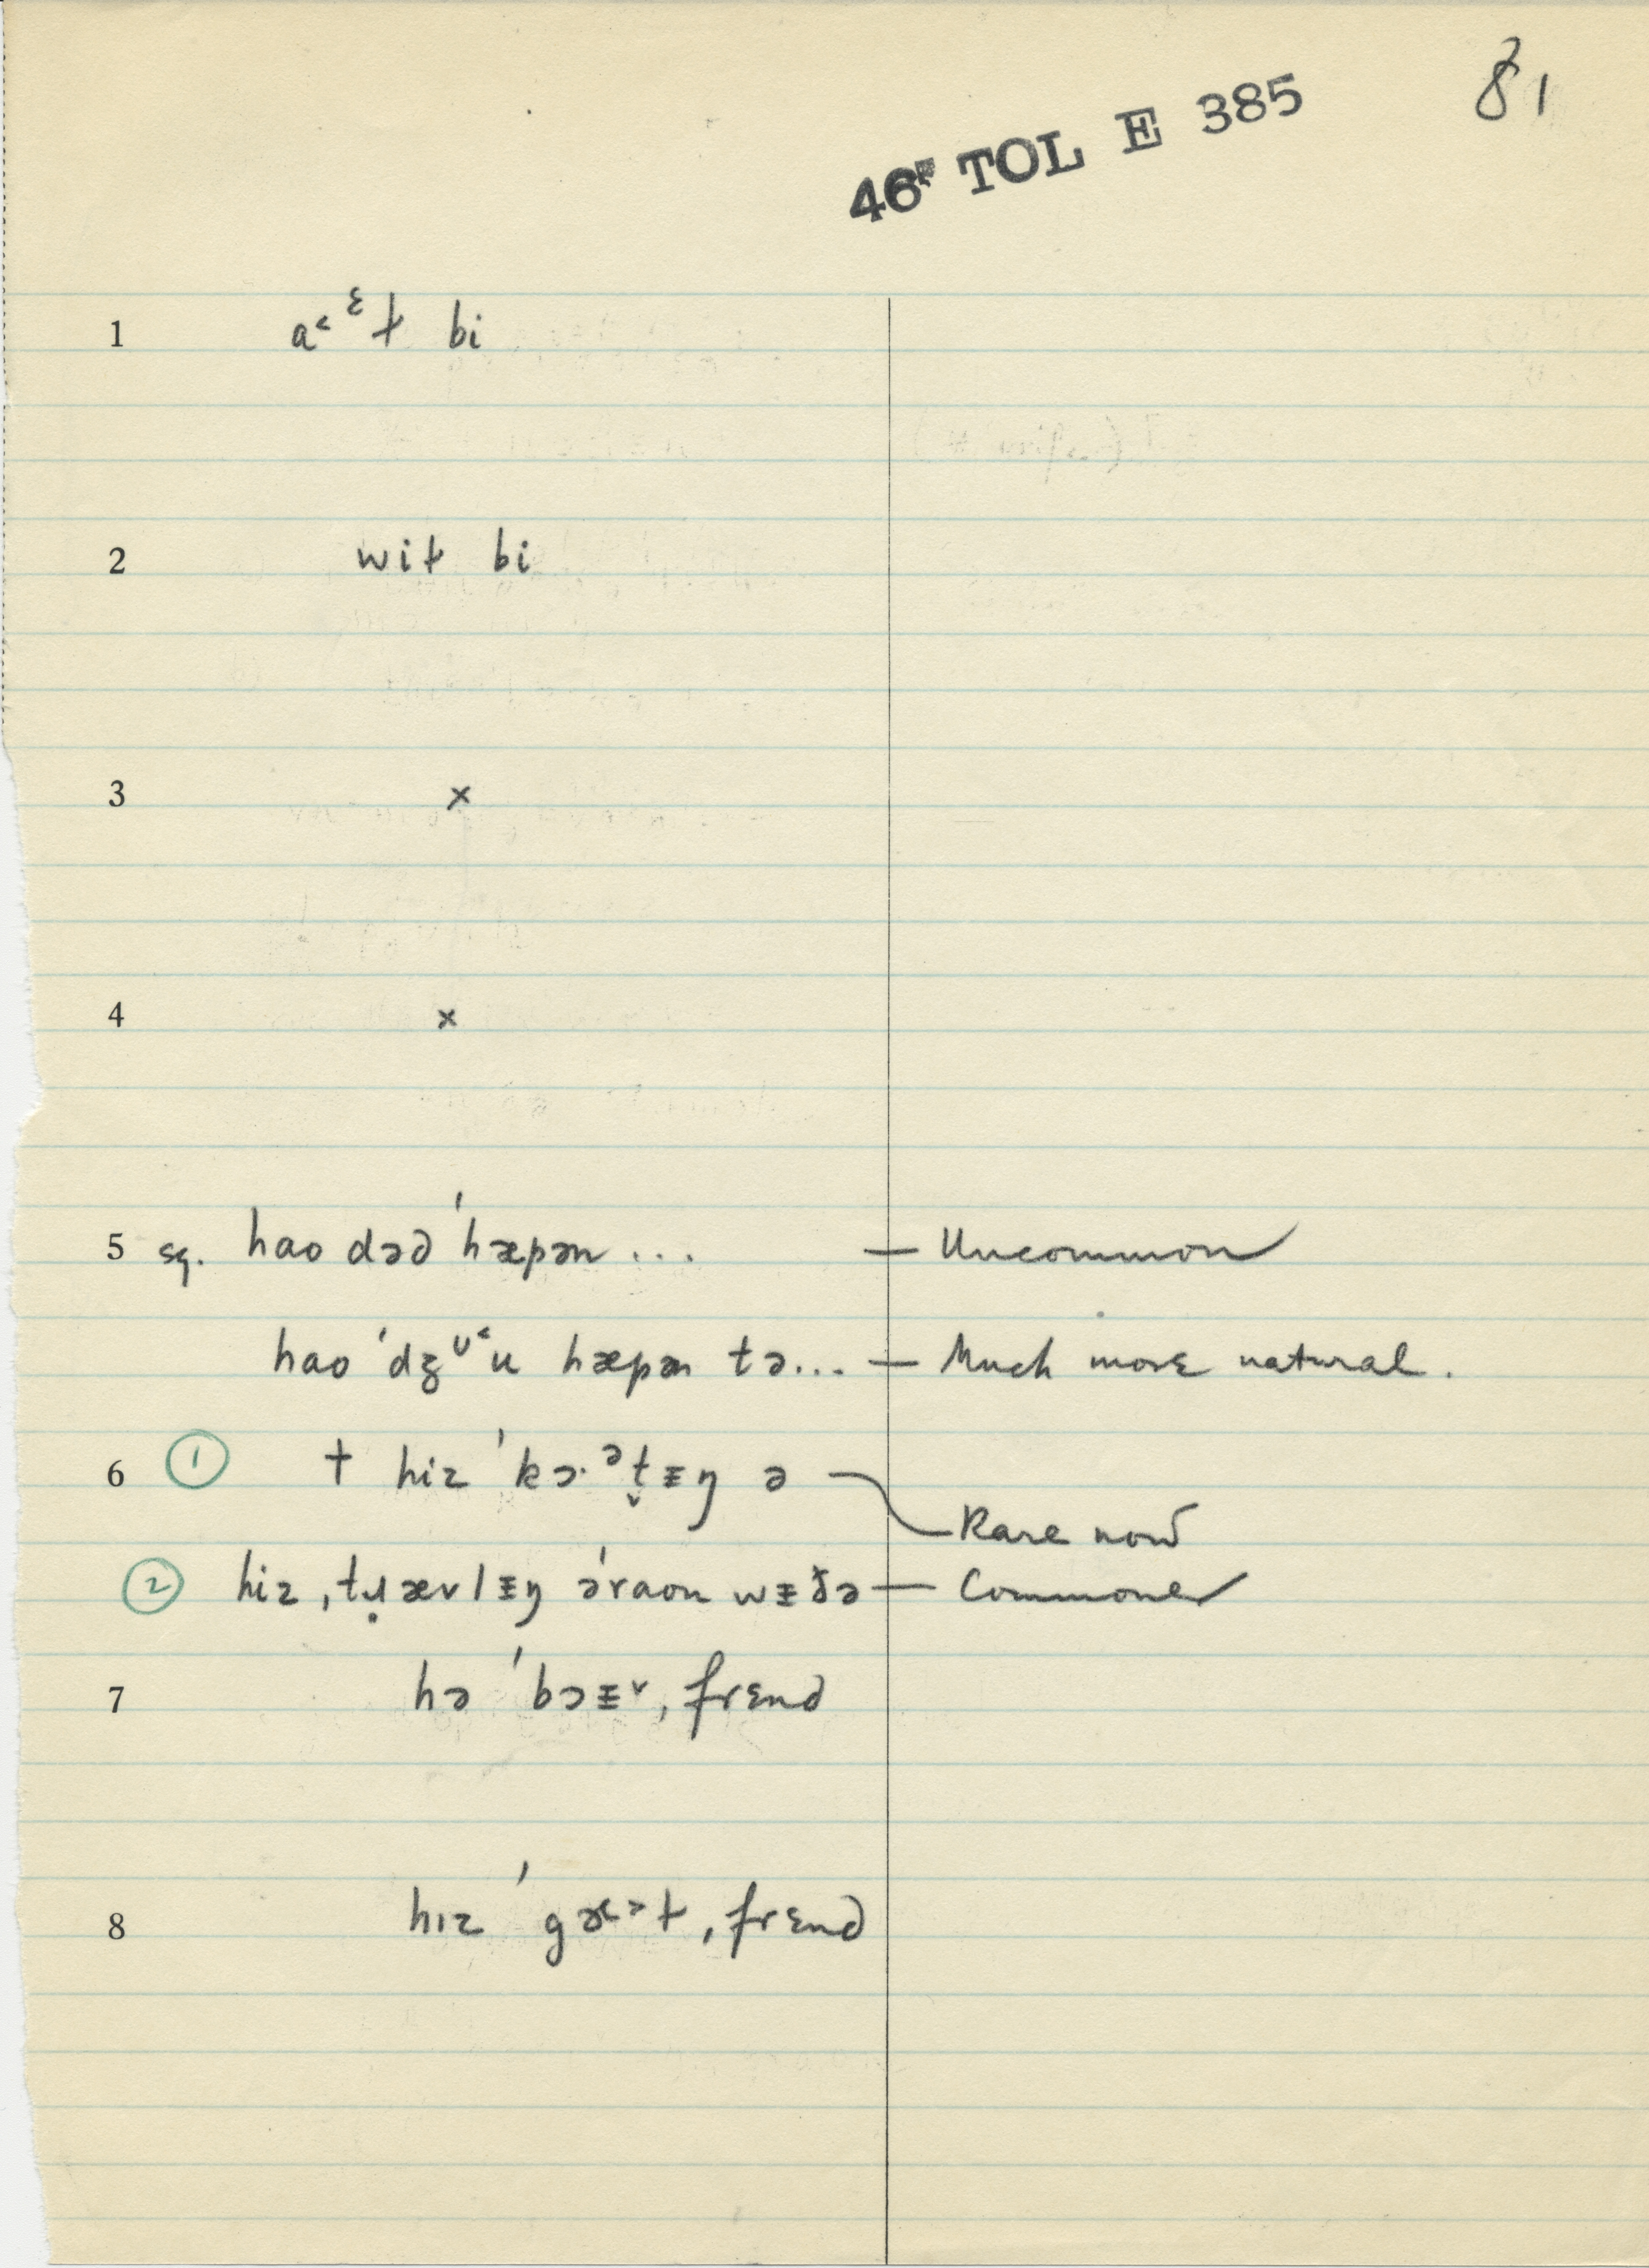 81
46F TOL E 385
1 a˂ᵋɫ bi
2 wiɫ bi
3 x
4 x
5 sq. hao dəd ˈhæpən ... — Uncommon
hao ˈdʒᶷ˂u hæpən tə... — Much more natural.
6 ① † hiz ˈkɔ·ᵊt̬ᵻŋ ə — Rare now
② hiz ˌtɹ̣ævlᵻŋ əˈraon wᵻðə — Commoner
7 hə ˈbɔᵻ˅, frɛnd
8 hɪz ˈgɚ˂˃ɫ, frɛnd